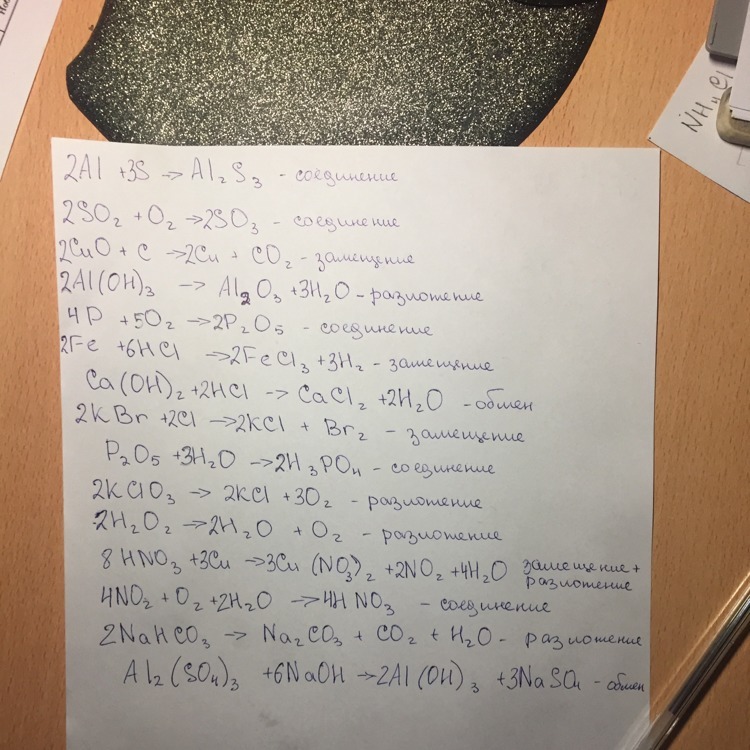 NH₄Cl
2Al + 3S → Al₂S₃ - соединение
2SO₂ + O₂ → 2SO₃ - соединение
2CuO + C → 2Cu + CO₂ - замещение
2Al(OH)₃ → Al₂O₃ + 3H₂O - разложение
4P + 5O₂ → 2P₂O₅ - соединение
2Fe + 6HCl → 2FeCl₃ + 3H₂ - замещение
Ca(OH)₂ + 2HCl → CaCl₂ + 2H₂O - обмен
2KBr + 2Cl → 2KCl + Br₂ - замещение
P₂O₅ + 3H₂O → 2H₃PO₄ - соединение
2KClO₃ → 2KCl + 3O₂ - разложение
2H₂O₂ → 2H₂O + O₂ - разложение
8HNO₃ + 3Cu → 3Cu(NO₃)₂ + 2NO₂ + 4H₂O замещение +
разложение
4NO₂ + O₂ + 2H₂O → 4HNO₃ - соединение
2NaHCO₃ → Na₂CO₃ + CO₂ + H₂O - разложение
Al₂(SO₄)₃ + 6NaOH → 2Al(OH)₃ + 3NaSO₄ - обмен